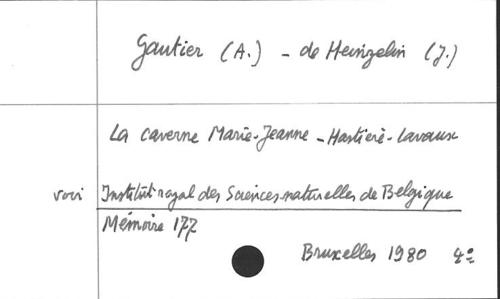 Gautier (A.) - de Heinzelin (J.)
La caverne Marie-Jeanne - Hastière-Lavaux
voir Institut royal des Sciences naturelles de Belgique
Mémoire 177
Bruxelles 1980 4°